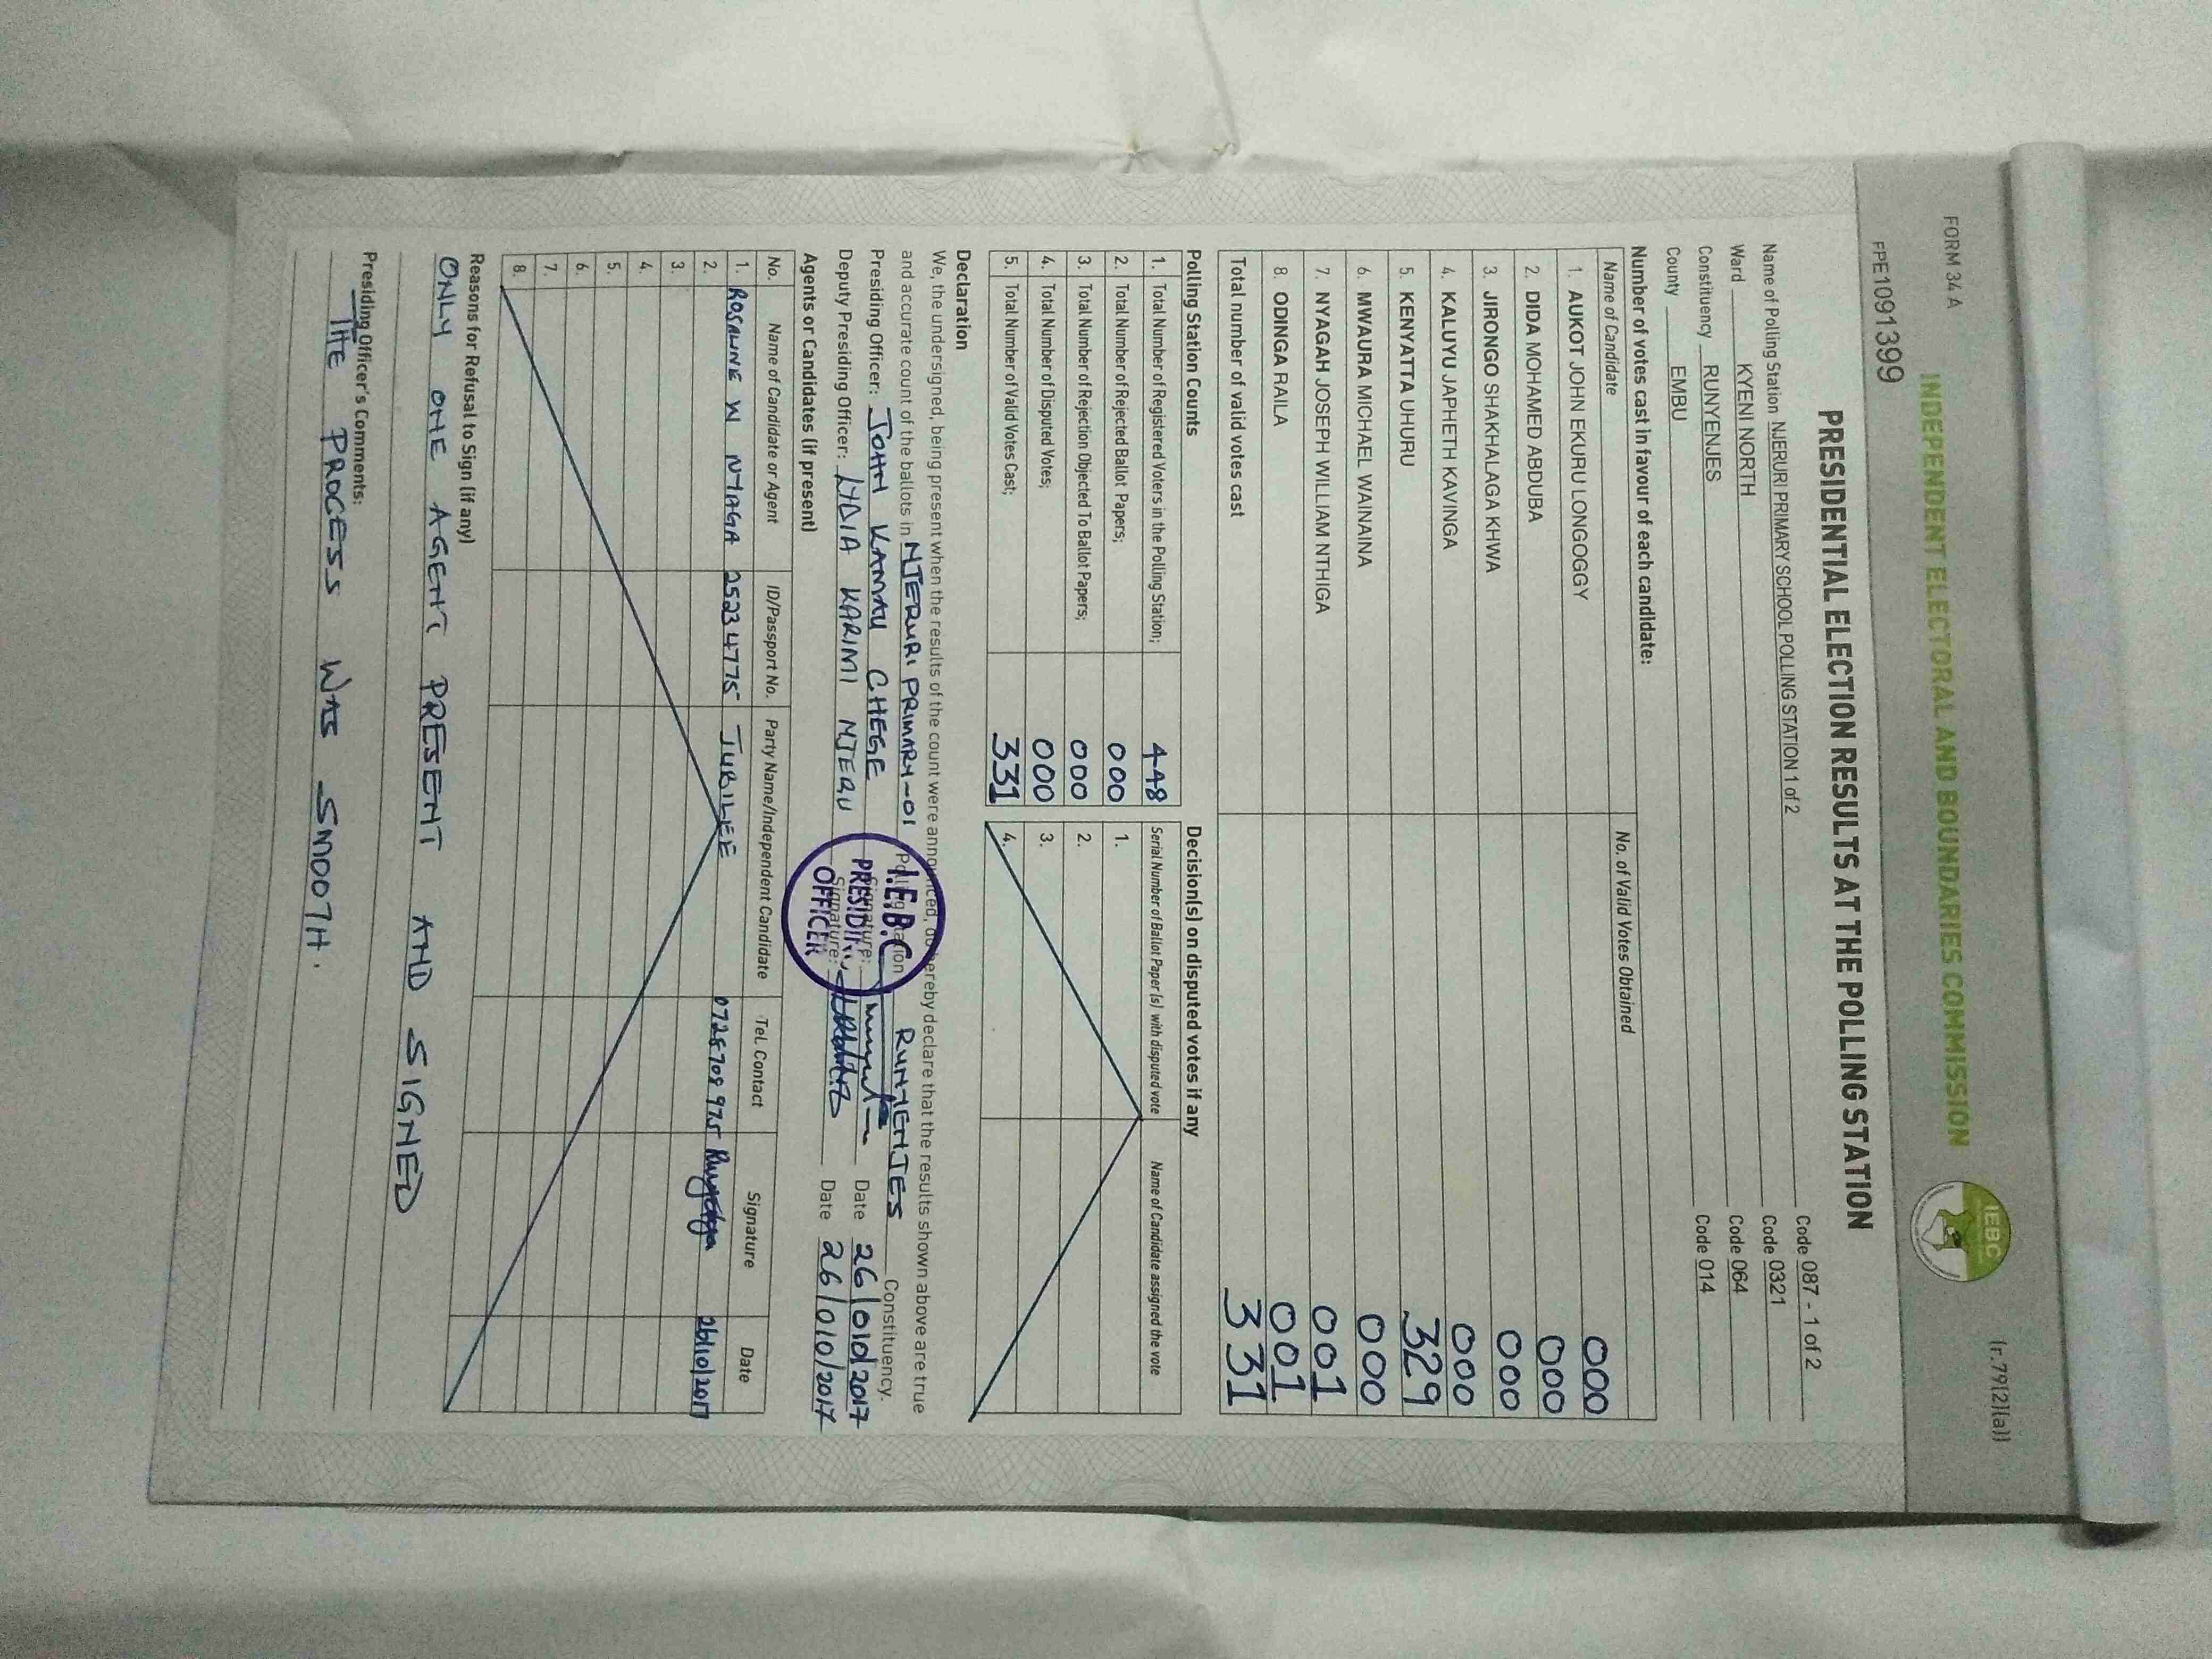 FORM 34 A
(r.79(2)(a))
INDEPENDENT ELECTORAL AND BOUNDARIES COMMISSION
IEBC
FPE1091399
PRESIDENTIAL ELECTION RESULTS AT THE POLLING STATION
Name of Polling Station NJERURI PRIMARY SCHOOL POLLING STATION 1 of 2 Code 087 - 1 of 2
Ward KYENI NORTH Code 0321
Constituency RUNYENJES Code 064
County EMBU Code 014
Number of votes cast in favour of each candidate:
Name of Candidate No. of Valid Votes Obtained
1. AUKOT JOHN EKURU LONGOGGY 000
2. DIDA MOHAMED ABDUBA 000
3. JIRONGO SHAKHALAGA KHWA 000
4. KALUYU JAPHETH KAVINGA 000
5. KENYATTA UHURU 329
6. MWAURA MICHAEL WAINAINA 000
7. NYAGAH JOSEPH WILLIAM NTHIGA 001
8. ODINGA RAILA 001
Total number of valid votes cast 331
Polling Station Counts
1. Total Number of Registered Voters in the Polling Station; 448
2. Total Number of Rejected Ballot Papers; 000
3. Total Number of Rejection Objected To Ballot Papers; 000
4. Total Number of Disputed Votes; 000
5. Total Number of Valid Votes Cast; 331
Decision(s) on disputed votes if any
Serial Number of Ballot Paper (s) with disputed vote Name of Candidate assigned the vote
1.
2.
3.
4.
Declaration
We, the undersigned, being present when the results of the count were announced, do hereby declare that the results shown above are true
and accurate count of the ballots in NJERURI PRIMARY-01 Polling Station RUNYENJES Constituency.
Presiding Officer: JOHN KAMAU CHEGE Signature: Date 26/010/2017
Deputy Presiding Officer: LYDIA KARIMI NJERU Signature: Date 26/010/2017
I.E.B.C
PRESIDING
OFFICER
Agents or Candidates (if present)
No. Name of Candidate or Agent ID/Passport No. Party Name/Independent Candidate Tel. Contact Signature Date
1. ROSALINE W NYAGA 25234775 JUBILEE 0728708975 26/10/2017
2.
3.
4.
5.
6.
7.
8.
Reasons for Refusal to Sign (if any)
ONLY ONE AGENT PRESENT AND SIGNED
Presiding Officer's Comments:
THE PROCESS WAS SMOOTH.